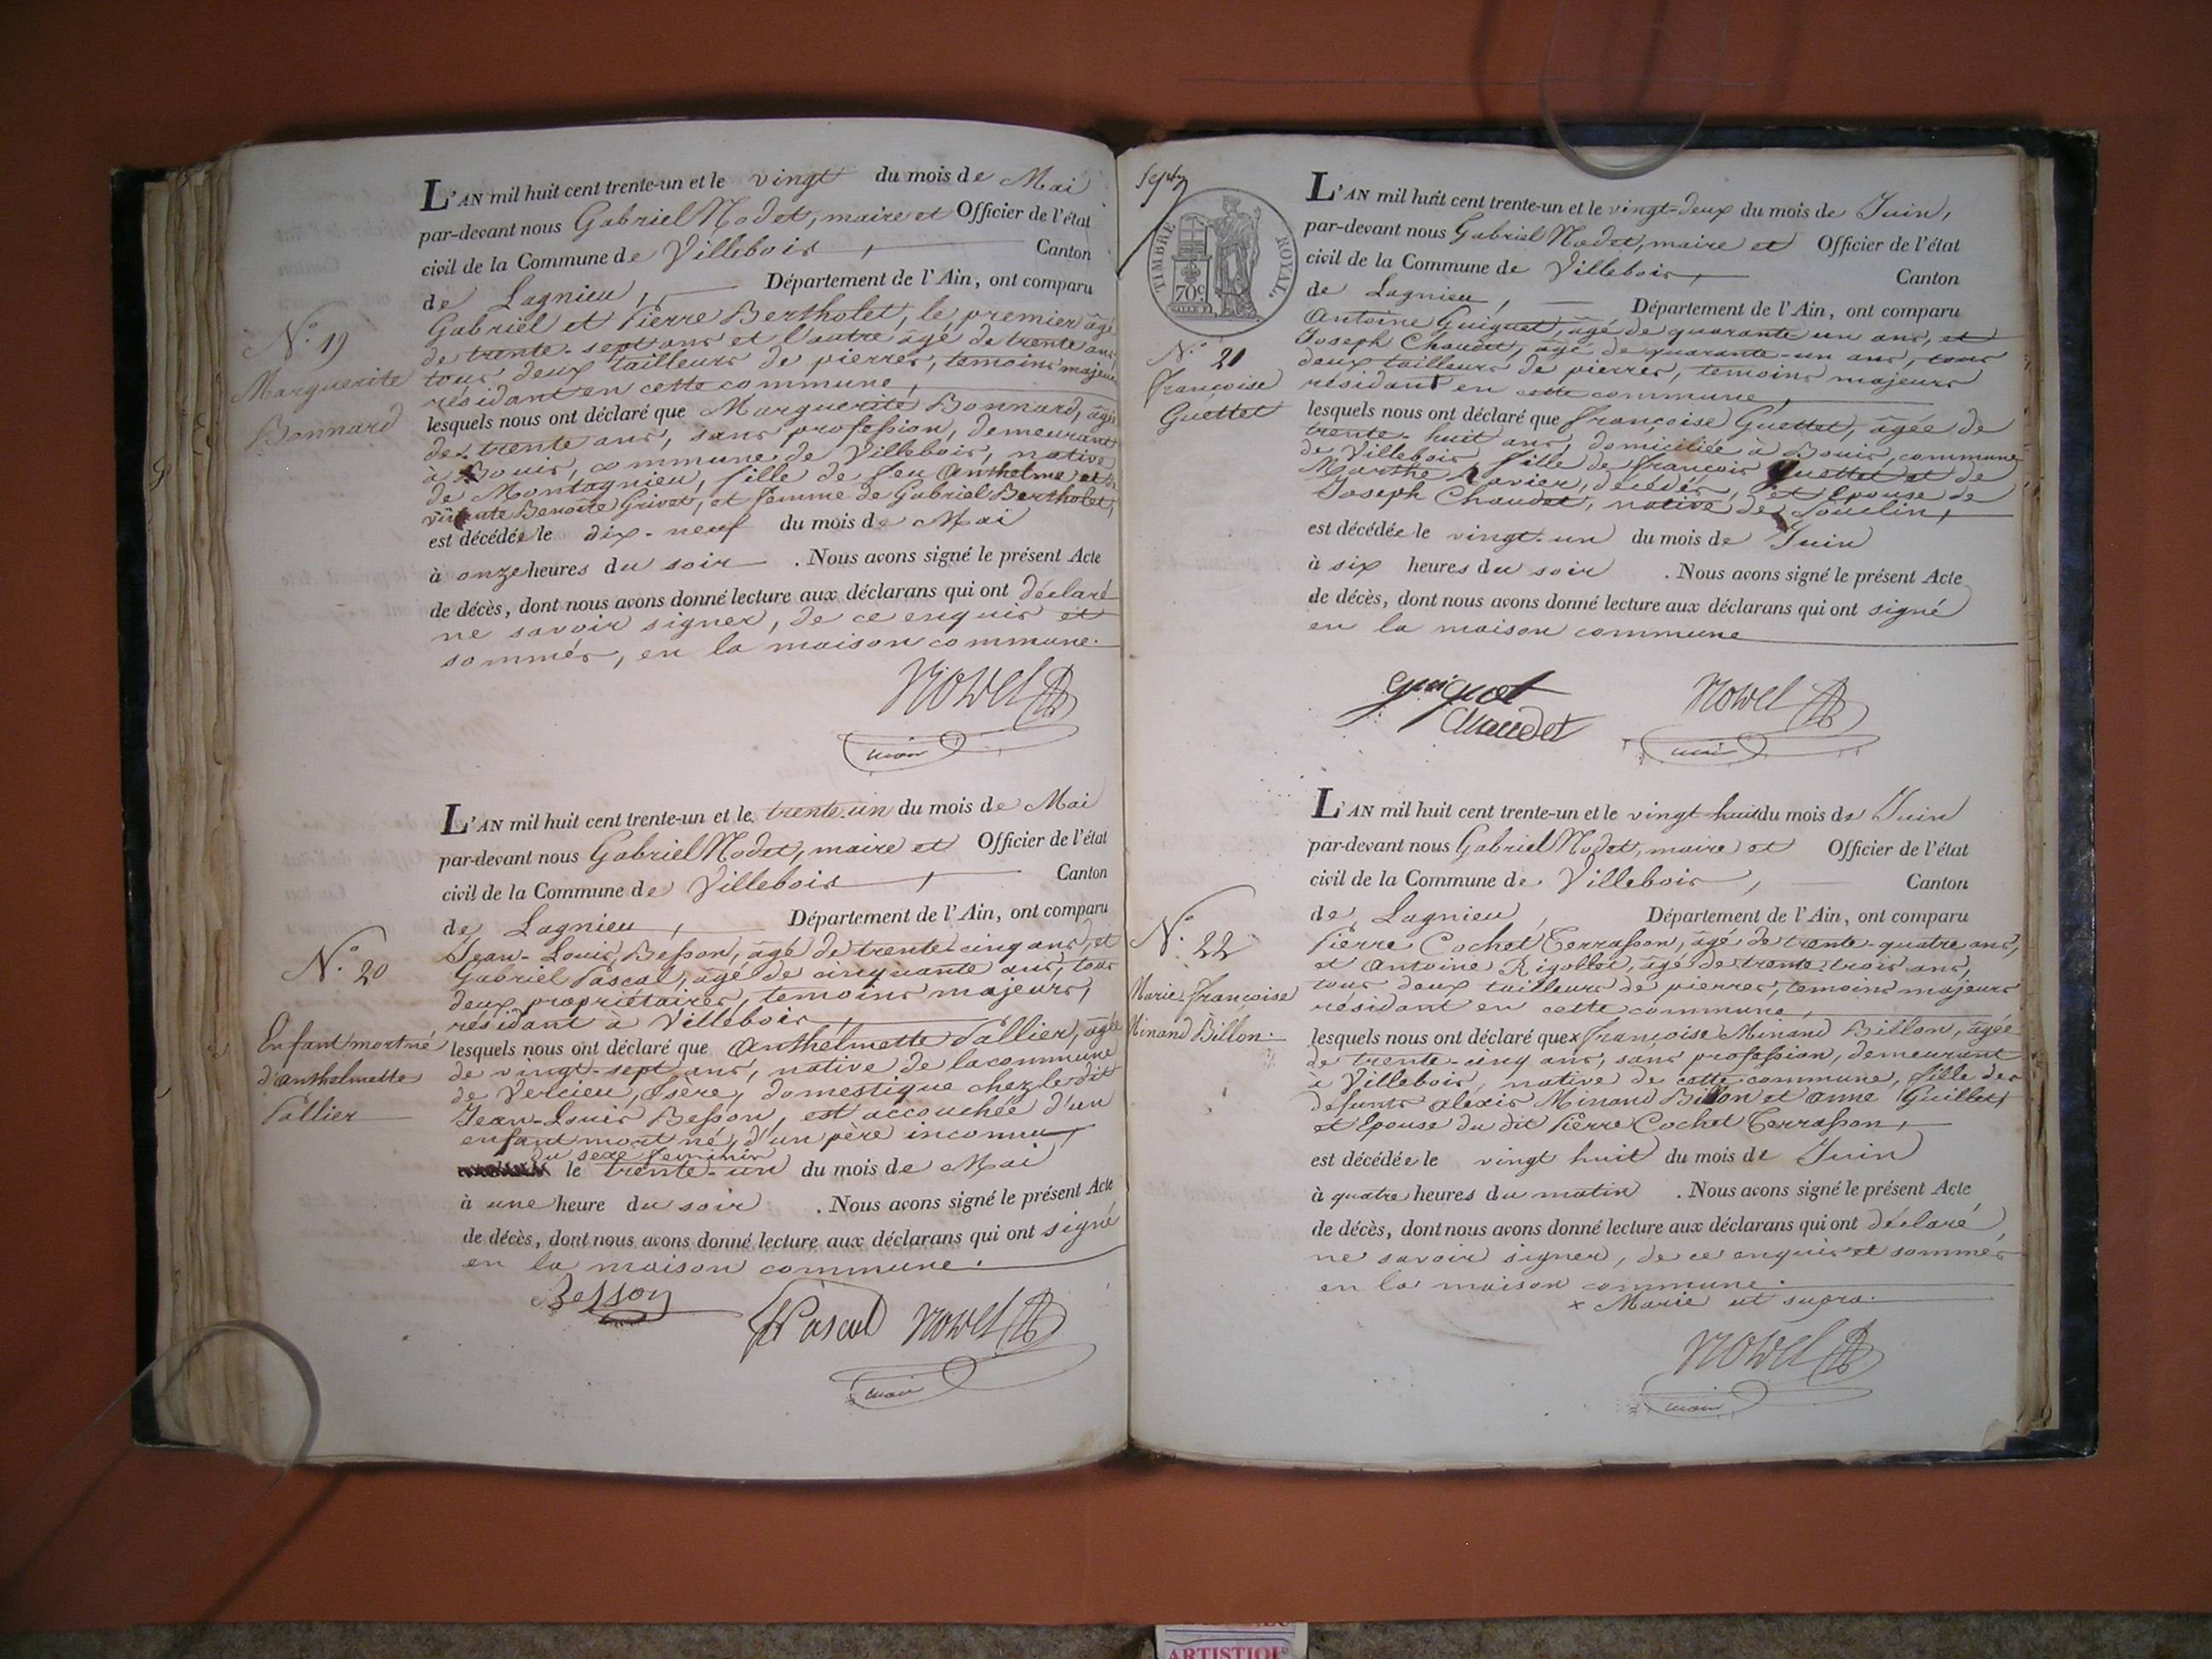 L'AN mil huit cent trente-un et le vingt du mois de Mai
par-devant nous Gabriel Nodet, maire et Officier de l'état
civil de la Commune de Villebois, Canton
de Lagnieu, Département de l'Ain, ont comparu
Gabriel et Pierre Bertholet, le premier âgé
de trente-sept ans et l'autre âgé de trente ans
tous deux tailleurs de pierres, temoins majeurs
résidant en cette commune,
N.° 19
Marguerite
Bonnard
lesquels nous ont déclaré que Marguerite Bonnard, âgée
de trente ans, sans profession, demeurant
à Bouis, commune de Villebois, native
de Montagnieu, fille de feu Anthelme et de
vivante Benoîte Grivot, et femme de Gabriel Bertholet,
est décédée le dix-neuf du mois de Mai
à onze heures du soir. Nous avons signé le présent Acte
de décès, dont nous avons donné lecture aux déclarans qui ont déclaré
ne savoir signer, de ce enquis et
sommés, en la maison commune.
Nodet
maire
L'AN mil huit cent trente-un et le trente-un du mois de Mai
par-devant nous Gabriel Nodet, maire et Officier de l'état
civil de la Commune de Villebois, Canton
de Lagnieu, Département de l'Ain, ont comparu
Jean-Louis Besson, âgé de trente-cinq ans, et
Gabriel Pascal, âgé de cinquante ans, tous
deux propriétaires, temoins majeurs,
résidant à Villebois,
N.° 20
Enfant mort né
d'anthelmette
Pallier
lesquels nous ont déclaré que Anthelmette Pallier, âgée
de vingt-sept ans, native de la commune
de Vercieu, Isère, domestique chez le dit
Jean-Louis Besson, est accouchée d'un
enfant mort né, d'un père inconnu,
du sexe feminin
le trente-un du mois de Mai
à une heure du soir. Nous avons signé le présent Acte
de décès, dont nous avons donné lecture aux déclarans qui ont signé
en la maison commune.
Besson Pascal Nodet
maire
TIMBRE ROYAL.
70c
L'AN mil huit cent trente-un et le vingt-deux du mois de Juin,
par-devant nous Gabriel Nodet, maire et Officier de l'état
civil de la Commune de Villebois, Canton
de Lagnieu, Département de l'Ain, ont comparu
Antoine Guiguet, âgé de quarante un ans, et
Joseph Chaudet, âgé de quarante-un ans, tous
deux tailleurs de pierres, temoins majeurs
résidant en cette commune,
N.° 21
Françoise
Guettet
lesquels nous ont déclaré que Françoise Guettet, âgée de
trente-huit ans, domiciliée à Bouis, commune
de Villebois, fille de François Guettet et de
Marthe Ravier, décédés, et Epouse de
Joseph Chaudet, native de Souclin,
est décédée le vingt-un du mois de Juin
à six heures du soir. Nous avons signé le présent Acte
de décès, dont nous avons donné lecture aux déclarans qui ont signé
en la maison commune
Guiguet Nodet
Chaudet
maire
L'AN mil huit cent trente-un et le vingt huit du mois de Juin
par-devant nous Gabriel Nodet, maire et Officier de l'état
civil de la Commune de Villebois, Canton
de Lagnieu, Département de l'Ain, ont comparu
Pierre Cochet Terrasson, âgé de trente-quatre ans,
et Antoine Rigollet, âgé de trente-trois ans,
tous deux tailleurs de pierres, temoins majeurs
résidant en cette commune,
N.° 22
Marie-françoise
Minand Billon.
lesquels nous ont déclaré que x françoise Minand Billon, âgée
de trente-cinq ans, sans profession, demeurant
à Villebois, native de cette commune, fille des
défunts alexis Minand Billon et anne Guillet,
et Epouse du dit Pierre Cochet Terrasson,
est décédée le vingt huit du mois de Juin
à quatre heures du matin. Nous avons signé le présent Acte
de décès, dont nous avons donné lecture aux déclarans qui ont déclaré
ne savoir signer, de ce enquis et sommés
en la maison commune.
x Marie ut supra.
Nodet
maire
ARTISTIQUE